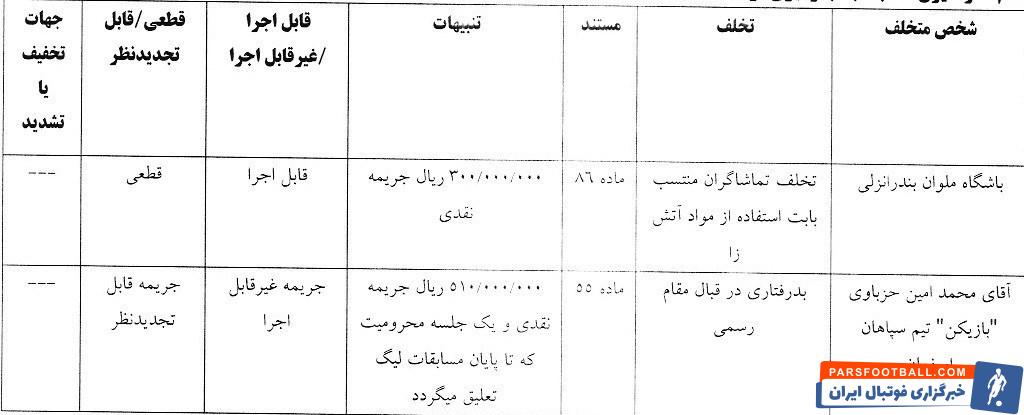 شخص متخلف
تخلف
مستند
تنبیهات
قابل اجرا
/غیرقابل اجرا
قطعی/قابل
تجدیدنظر
جهات
تخفیف
یا
تشدید
باشگاه ملوان بندرانزلی
تخلف تماشاگران منتسب
بابت استفاده از مواد آتش
زا
ماده ۸۶
۳۰۰/۰۰۰/۰۰۰ ریال جریمه
نقدی
قابل اجرا
قطعی
---
آقای محمد امین حزباوی
"بازیکن" تیم سپاهان
بدرفتاری در قبال مقام
رسمی
ماده ۵۵
۵۱۰/۰۰۰/۰۰۰ ریال جریمه
نقدی و یک جلسه محرومیت
که تا پایان مسابقات لیگ
تعلیق میگردد
جریمه غیرقابل
اجرا
جریمه قابل
تجدیدنظر
---
PARSFOOTBALL.COM
خبرگزاری فوتبال ایران